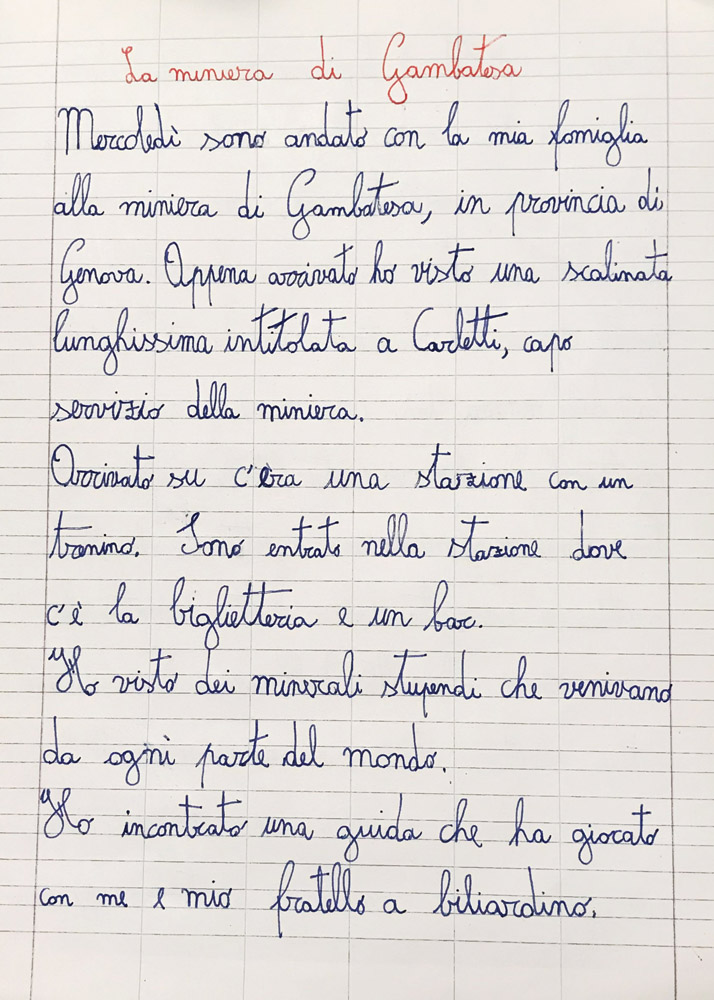 La miniera di Gambatesa
Mercoledì sono andato con la mia famiglia
alla miniera di Gambatesa, in provincia di
Genova. Appena arrivato ho visto una scalinata
lunghissima intitolata a Carletti, capo
servizio della miniera.
Arrivato su c'era una stazione con un
trenino. Sono entrato nella stazione dove
c'è la biglietteria e un bar.
Ho visto dei minerali stupendi che venivano
da ogni parte del mondo.
Ho incontrato una guida che ha giocato
con me e mio fratello a biliardino.